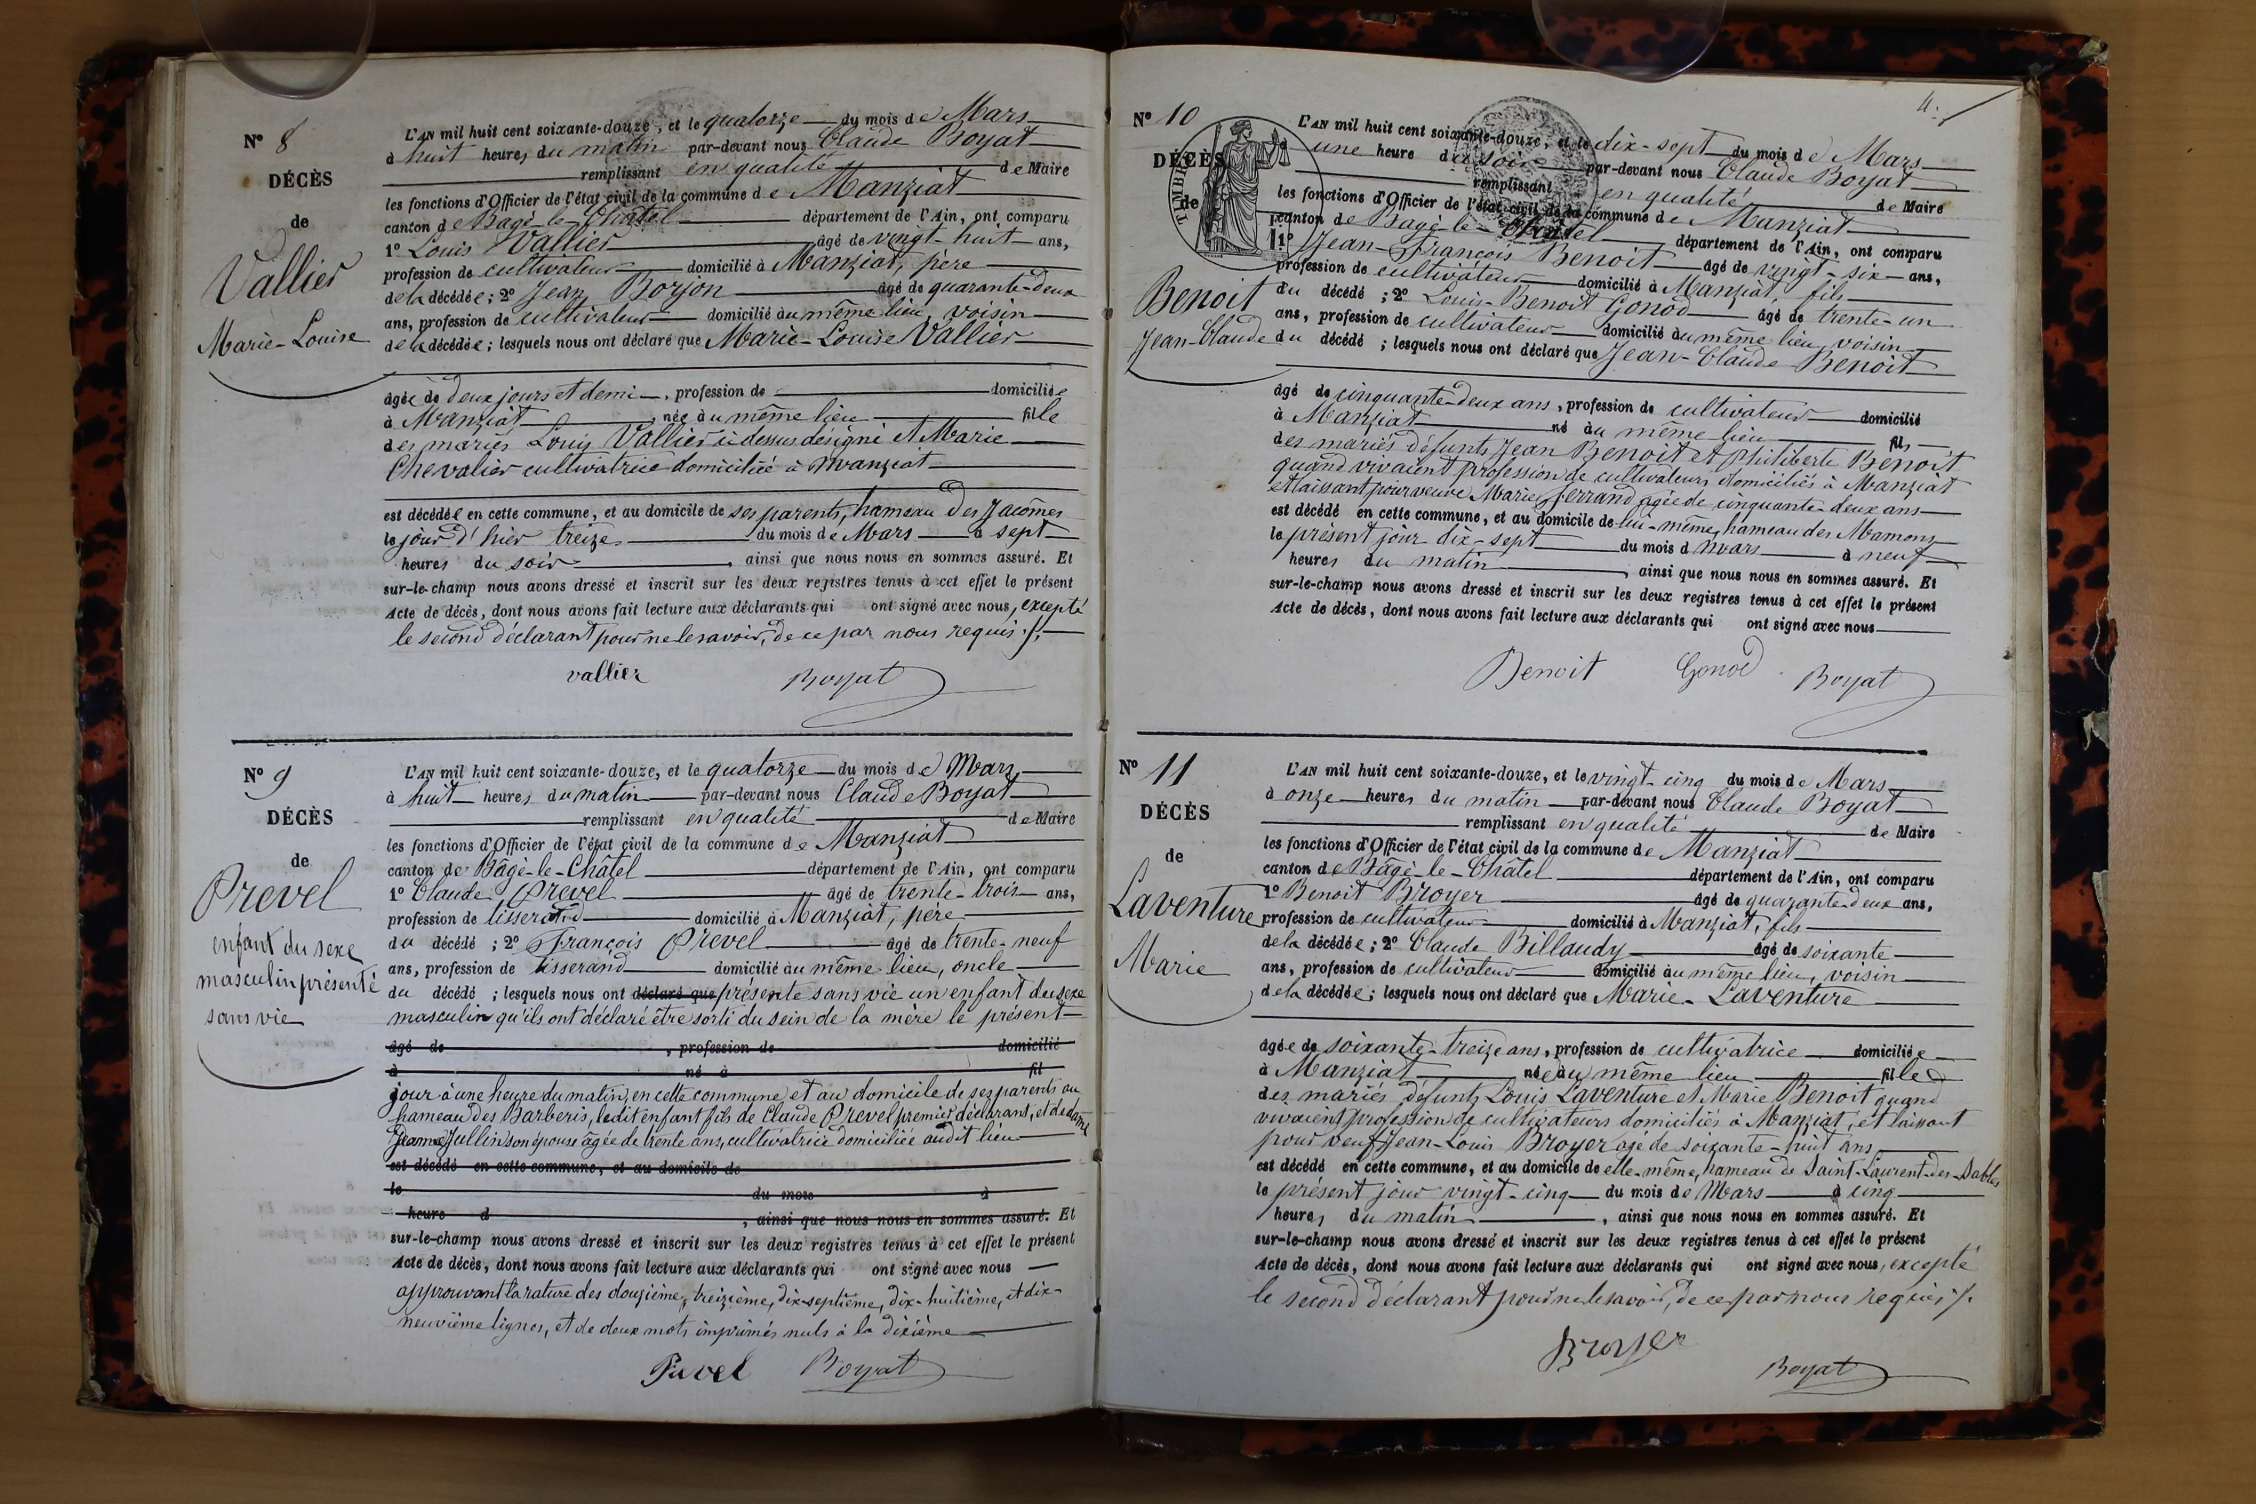 N° 8
DÉCÈS
de
Vallier
Marie-Louise
L'AN mil huit cent soixante-douze, et le quatorze du mois de Mars
à huit heures du matin par-devant nous Claude Boyat
remplissant en qualité de Maire
les fonctions d'Officier de l'état civil de la commune de Manziat
canton de Bagé-le-Châtel département de l'Ain, ont comparu
1° Louis Vallier âgé de vingt-huit ans,
profession de cultivateur domicilié à Manziat, père
de la décédée; 2° Jean Borjon âgé de quarante-deux
ans, profession de cultivateur domicilié au même lieu, voisin
de la décédée; lesquels nous ont déclaré que Marie-Louise Vallier
âgée de deux jours et demi, profession de domiciliée
à Manziat née au même lieu fille
des mariés Louis Vallier ci dessus désigné et Marie
Chevalier cultivatrice domiciliée à Manziat
est décédée en cette commune, et au domicile de ses parents, hameau des Jacômes
le jour d'hier treize du mois de Mars à sept
heures du soir, ainsi que nous nous en sommes assuré. Et
sur-le-champ nous avons dressé et inscrit sur les deux registres tenus à cet effet le présent
Acte de décès, dont nous avons fait lecture aux déclarants qui ont signé avec nous, excepté
le second déclarant pour ne le savoir, de ce par nous requis ./.
vallier Boyat
N° 9
DÉCÈS
de
Prevel
enfant du sexe
masculin présenté
sans vie
L'AN mil huit cent soixante-douze, et le quatorze du mois de Mars
à huit heures du matin par-devant nous Claude Boyat
remplissant en qualité de Maire
les fonctions d'Officier de l'état civil de la commune de Manziat
canton de Bâgé-le-Châtel département de l'Ain, ont comparu
1° Claude Prevel âgé de trente-trois ans,
profession de tisserand domicilié à Manziat, père
du décédé; 2° François Prevel âgé de trente-neuf
ans, profession de tisserand domicilié au même lieu, oncle
du décédé; lesquels nous ont déclaré que présenté sans vie un enfant du sexe
masculin qu'ils ont déclaré être sorti du sein de la mère le présent
âgé de , profession de domicilié
à né à fil
jour à une heure du matin, en cette commune, et au domicile de ses parents au
hameau des Barberis, ledit enfant fils de Claude Prevel premier déclarant, et de dame
Jeanne Jullin son épouse âgée de trente ans, cultivatrice domiciliée audit lieu
est décédé en cette commune, et au domicile de
le du mois à
heure d , ainsi que nous nous en sommes assuré. Et
sur-le-champ nous avons dressé et inscrit sur les deux registres tenus à cet effet le présent
Acte de décès, dont nous avons fait lecture aux déclarants qui ont signé avec nous
approuvant la rature des douzième, treizième, dix-septième, dix-huitième, et dix-
neuvième lignes, et de deux mots imprimés nuls à la dixième
Prevel Boyat
4.
N° 10
DÉCÈS
de
TIMBRE
Benoit
Jean-Claude
L'AN mil huit cent soixante-douze, et le dix-sept du mois de Mars
à une heure du soir par-devant nous Claude Boyat
remplissant en qualité de Maire
les fonctions d'Officier de l'état civil de la commune de Manziat
canton de Bagé-le-Châtel département de l'Ain, ont comparu
1° Jean-François Benoit âgé de vingt-six ans,
profession de cultivateur domicilié à Manziat, fils
du décédé; 2° Louis-Benoit Gonod âgé de trente-un
ans, profession de cultivateur domicilié au même lieu, voisin
du décédé; lesquels nous ont déclaré que Jean-Claude Benoit
âgé de cinquante-deux ans, profession de cultivateur domicilié
à Manziat né au même lieu fils
des mariés défunts Jean Benoit et Philiberte Benoit
quand vivaient profession de cultivateurs domiciliés à Manziat
et laissant pour veuve Marie Ferrand âgée de cinquante-deux ans
est décédé en cette commune, et au domicile de lui-même, hameau des Mamons
le présent jour dix-sept du mois d Mars à neuf
heures du matin, ainsi que nous nous en sommes assuré. Et
sur-le-champ nous avons dressé et inscrit sur les deux registres tenus à cet effet le présent
Acte de décès, dont nous avons fait lecture aux déclarants qui ont signé avec nous
Benoit Gonod Boyat
N° 11
DÉCÈS
de
Laventure
Marie
L'AN mil huit cent soixante-douze, et le vingt-cinq du mois de Mars
à onze heures du matin par-devant nous Claude Boyat
remplissant en qualité de Maire
les fonctions d'Officier de l'état civil de la commune de Manziat
canton de Bâgé-le-Châtel département de l'Ain, ont comparu
1° Benoit Broyer âgé de quarante-deux ans,
profession de cultivateur domicilié à Manziat, fils
de la décédée; 2° Claude Billaudy âgé de soixante
ans, profession de cultivateur domicilié au même lieu, voisin
de la décédée; lesquels nous ont déclaré que Marie Laventure
âgée de soixante-treize ans, profession de cultivatrice domiciliée
à Manziat née au même lieu fille
des mariés défunts Louis Laventure et Marie Benoit quand
vivaient profession de cultivateurs domiciliés à Manziat, et laissant
pour veuf Jean-Louis Broyer agé de soixante-huit ans
est décédé en cette commune, et au domicile de elle-même, hameau de Saint-Laurent-des-Sables
le présent jour vingt-cinq du mois de Mars à cinq
heures du matin, ainsi que nous nous en sommes assuré. Et
sur-le-champ nous avons dressé et inscrit sur les deux registres tenus à cet effet le présent
Acte de décès, dont nous avons fait lecture aux déclarants qui ont signé avec nous, excepté
le second déclarant pour ne le savoir, de ce par nous requis ./.
Broyer
Boyat